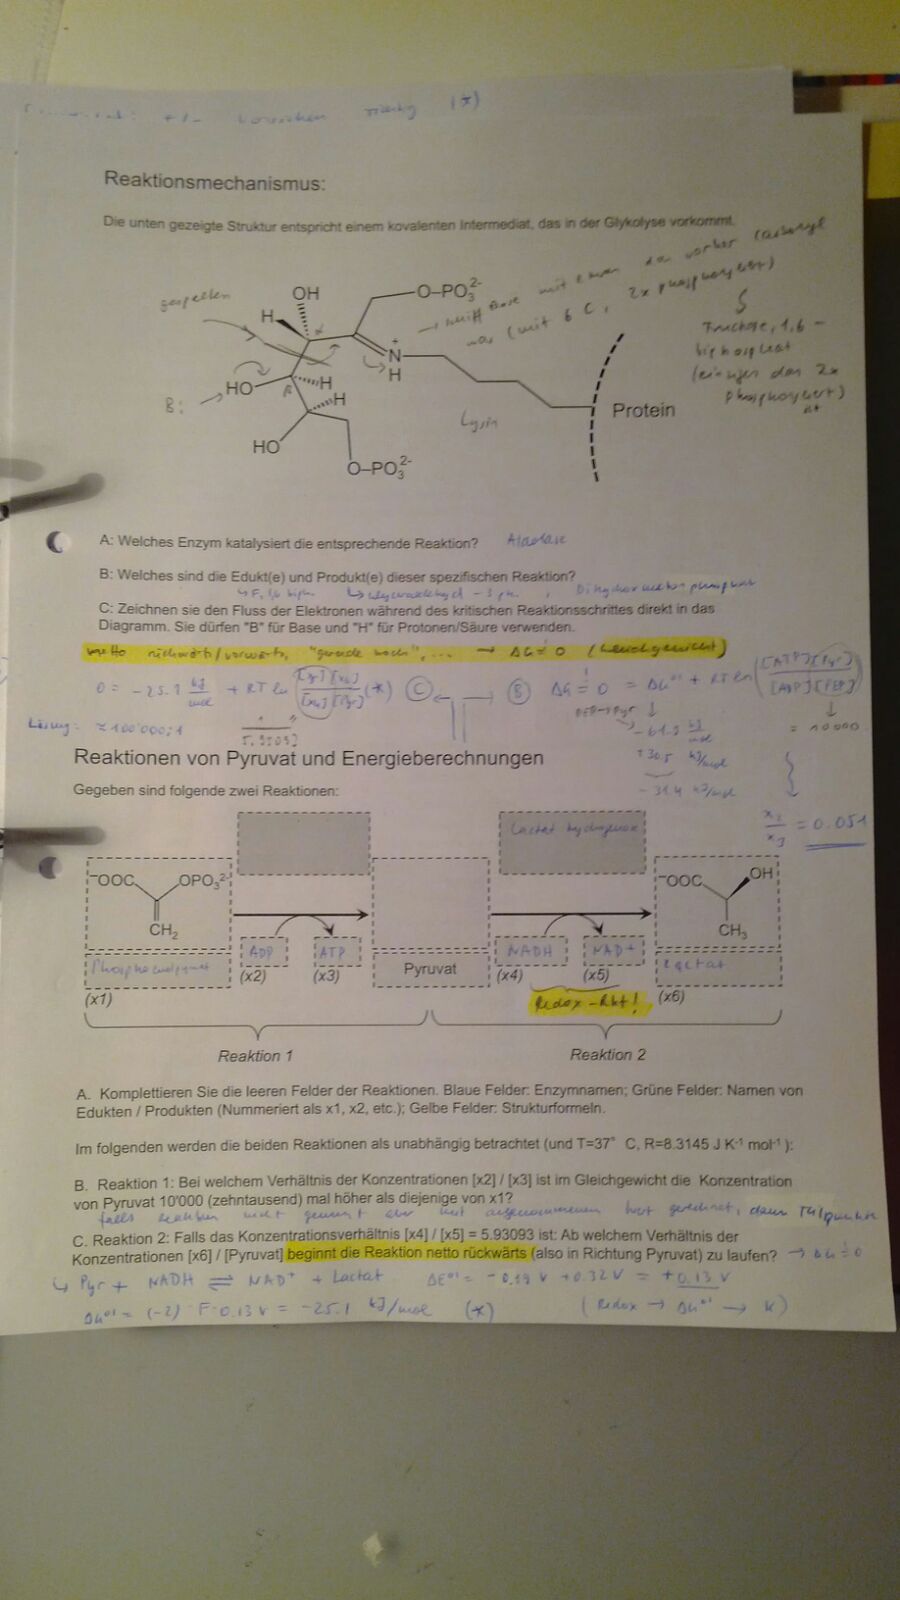 (*)
Reaktionsmechanismus:
Die unten gezeigte Struktur entspricht einem kovalenten Intermediat, das in der Glykolyse vorkommt.
gespalten
OH
H
O–PO₃²⁻
→ Schiff Base mit etwas das vorher Carbonyl
war (mit 6 C, 2x phosphoryliert)
Fructose, 1,6 -
bisphosphat
(einziges das 2x
phosphoryliert)
ist
α
+
N
H
HO
H
β
H
B:
HO
Lysin
Protein
O–PO₃²⁻
A: Welches Enzym katalysiert die entsprechende Reaktion? Aldolase
B: Welches sind die Edukt(e) und Produkt(e) dieser spezifischen Reaktion?
↳ F, 1,6 biph. ↳ Glycerinaldehyd - 3 ph. , Dihydroxyacetonphosphat
C: Zeichnen sie den Fluss der Elektronen während des kritischen Reaktionsschrittes direkt in das
Diagramm. Sie dürfen "B" für Base und "H" für Protonen/Säure verwenden.
netto rückwärts/vorwärts, "gerade noch", ... → ΔG = 0 (Gleichgewicht)
0 = -25.1 kJ/mol + RT ln (*) (C) ← → (B) ΔG = 0 = ΔG°' + RT ln [ATP][Pyr]/[ADP][PEP]
PEP→Pyr
-61.9 kJ/mol
= 10000
+30.5 kJ/mol
-31.4 kJ/mol
x₂/x₃ = 0.051
Lösung: ≈ 100'000:1
1/5,93093
Reaktionen von Pyruvat und Energieberechnungen
Gegeben sind folgende zwei Reaktionen:
⁻OOC OPO₃²⁻
CH₂
Phosphoenolpyruvat
(x1)
ADP
(x2)
ATP
(x3)
Pyruvat
NADH
(x4)
NAD⁺
(x5)
Redox-Rkt!
⁻OOC OH
CH₃
Lactat
(x6)
Reaktion 1
Reaktion 2
A. Komplettieren Sie die leeren Felder der Reaktionen. Blaue Felder: Enzymnamen; Grüne Felder: Namen von
Edukten / Produkten (Nummeriert als x1, x2, etc.); Gelbe Felder: Strukturformeln.
Im folgenden werden die beiden Reaktionen als unabhängig betrachtet (und T=37° C, R=8.3145 J K⁻¹ mol⁻¹):
B. Reaktion 1: Bei welchem Verhältnis der Konzentrationen [x2] / [x3] ist im Gleichgewicht die Konzentration
von Pyruvat 10'000 (zehntausend) mal höher als diejenige von x1?
falls Reaktion nicht gewusst aber mit angenommenem Wert gerechnet, dann Teilpunkte
C. Reaktion 2: Falls das Konzentrationsverhältnis [x4] / [x5] = 5.93093 ist: Ab welchem Verhältnis der
Konzentrationen [x6] / [Pyruvat] beginnt die Reaktion netto rückwärts (also in Richtung Pyruvat) zu laufen? → ΔG = 0
↳ Pyr + NADH ⇌ NAD⁺ + Lactat ΔE°' = -0.19 V + 0.32 V = +0.13 V
ΔG°' = (-2) · F · 0.13 V = -25.1 kJ/mol (*) (Redox → ΔG°' → K)